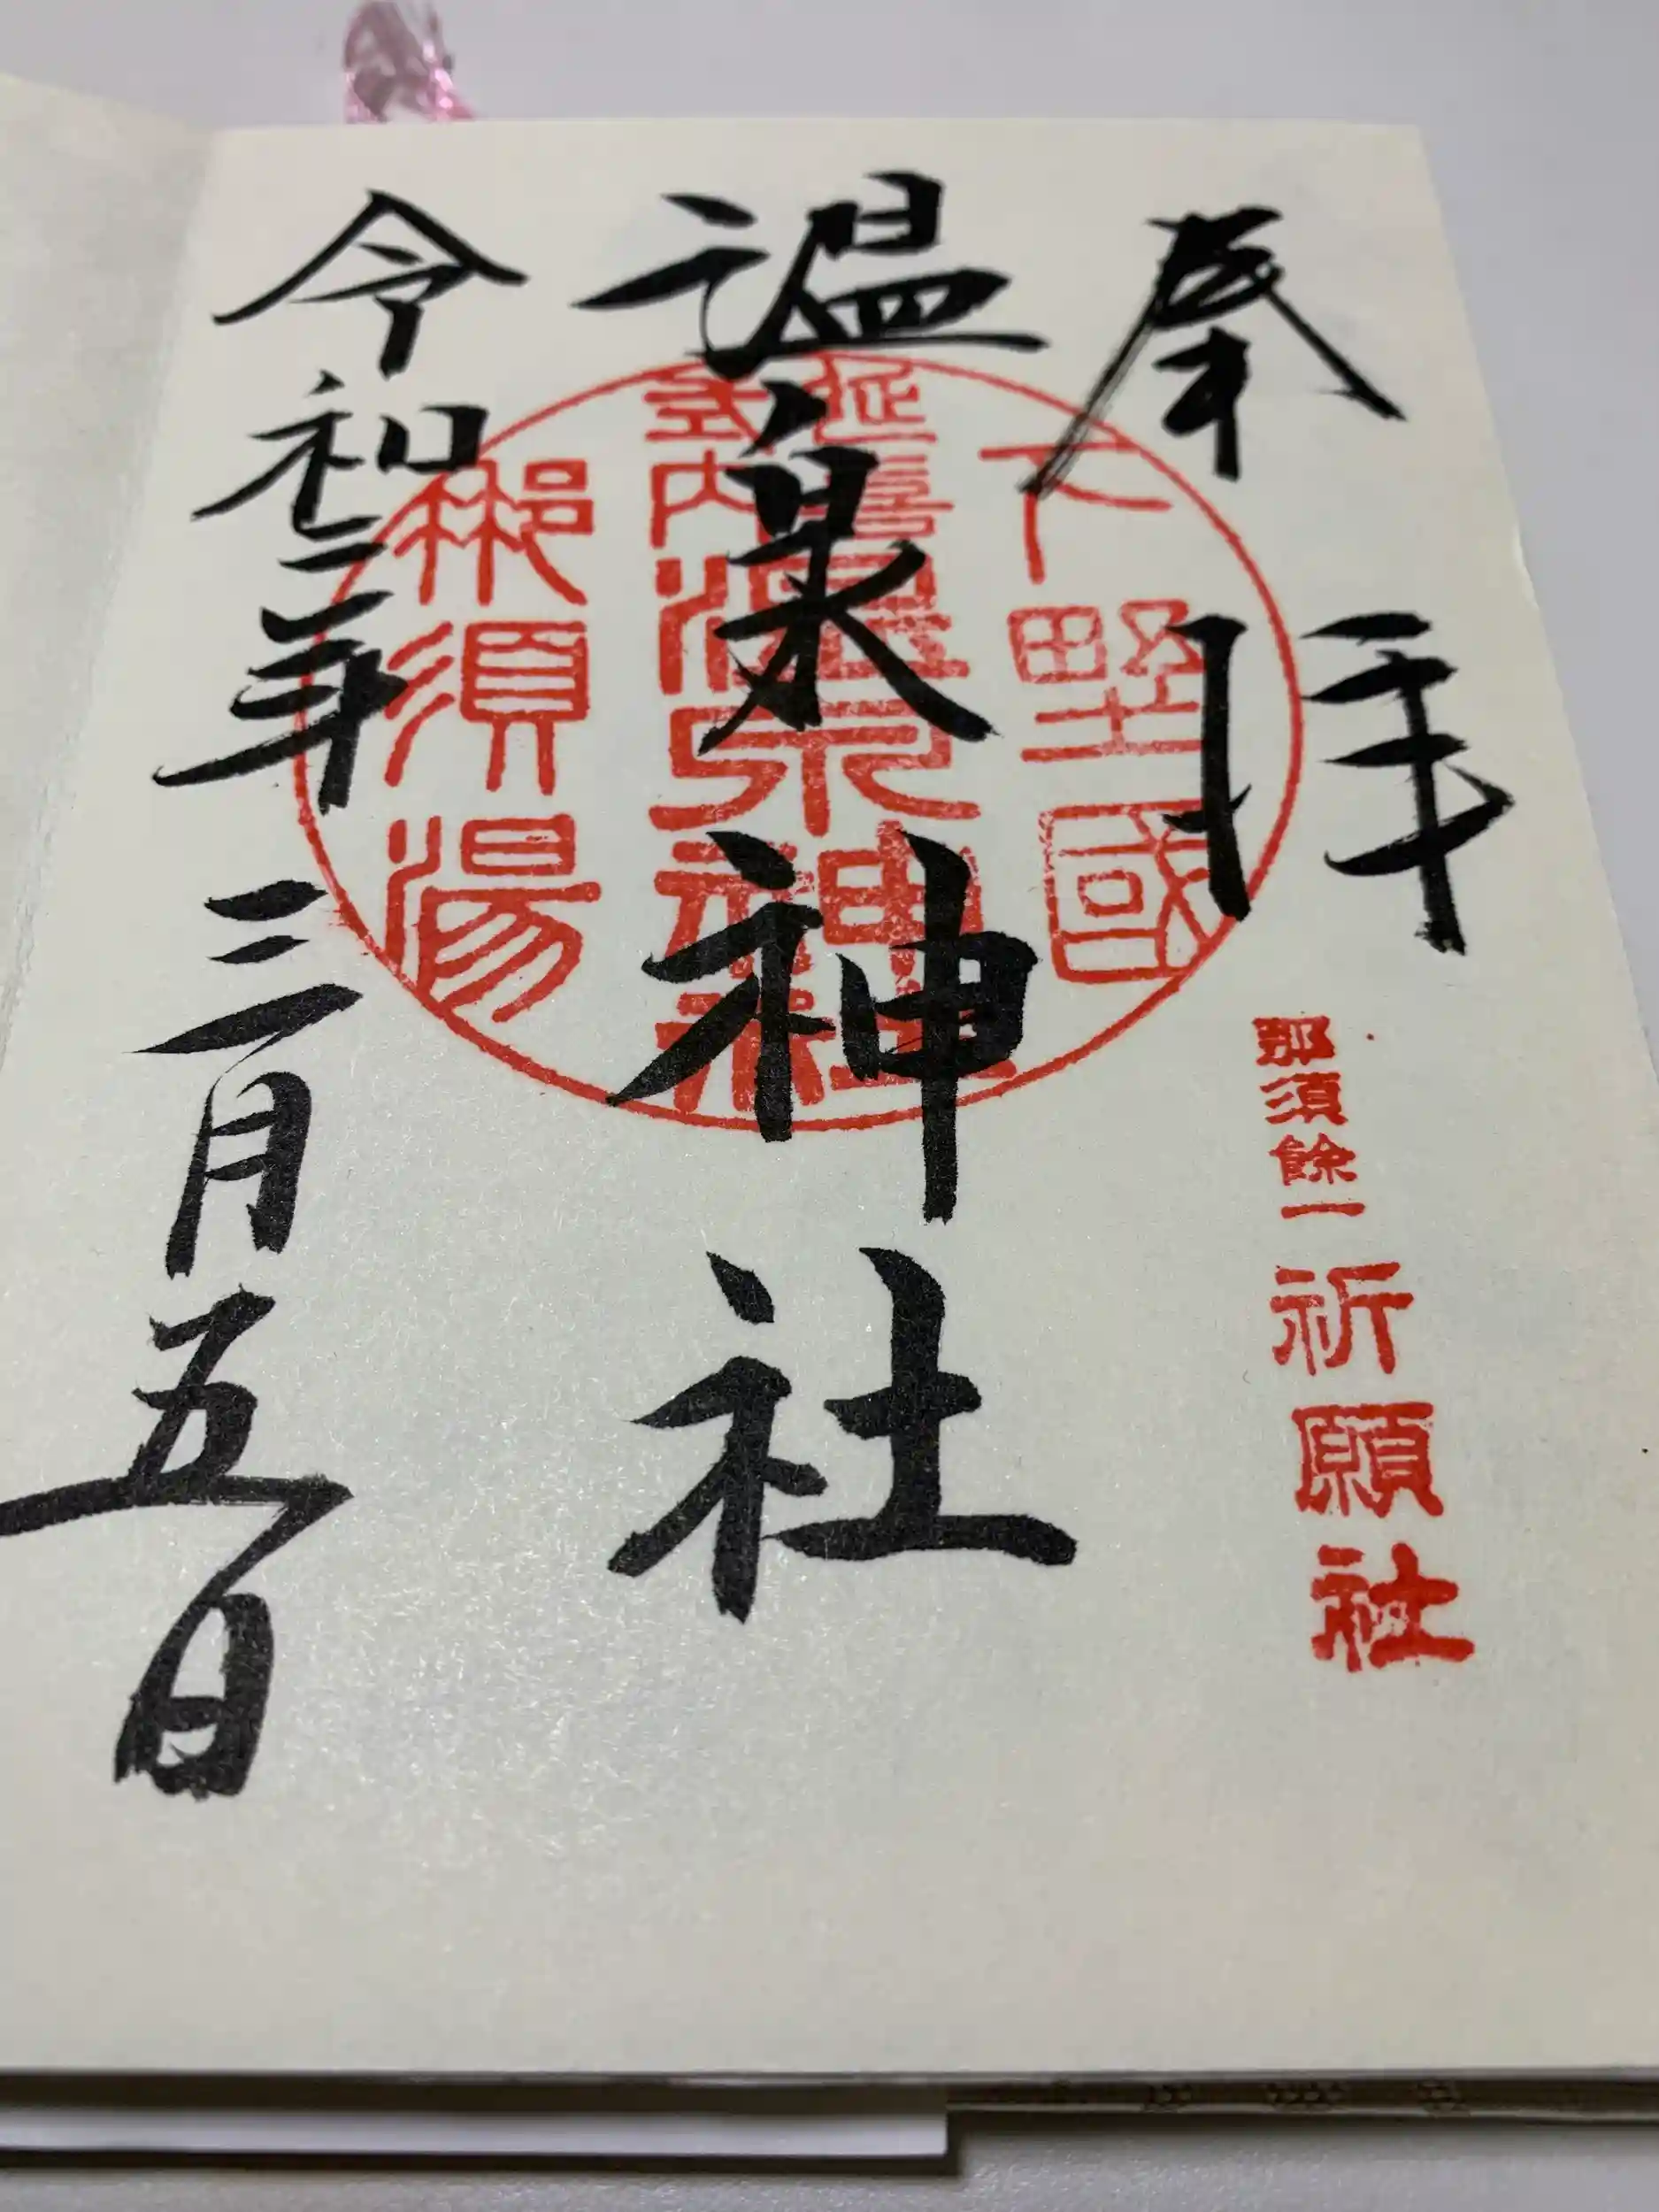 奉拝
那須餘一祈願社
温泉神社
下野國
延喜
式内
温泉神社
那須湯
令和二年三月五日